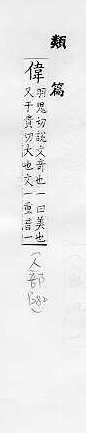 類篇
偉
羽鬼切說文奇也一曰美也
又于貴切大也文一重音一
(人部